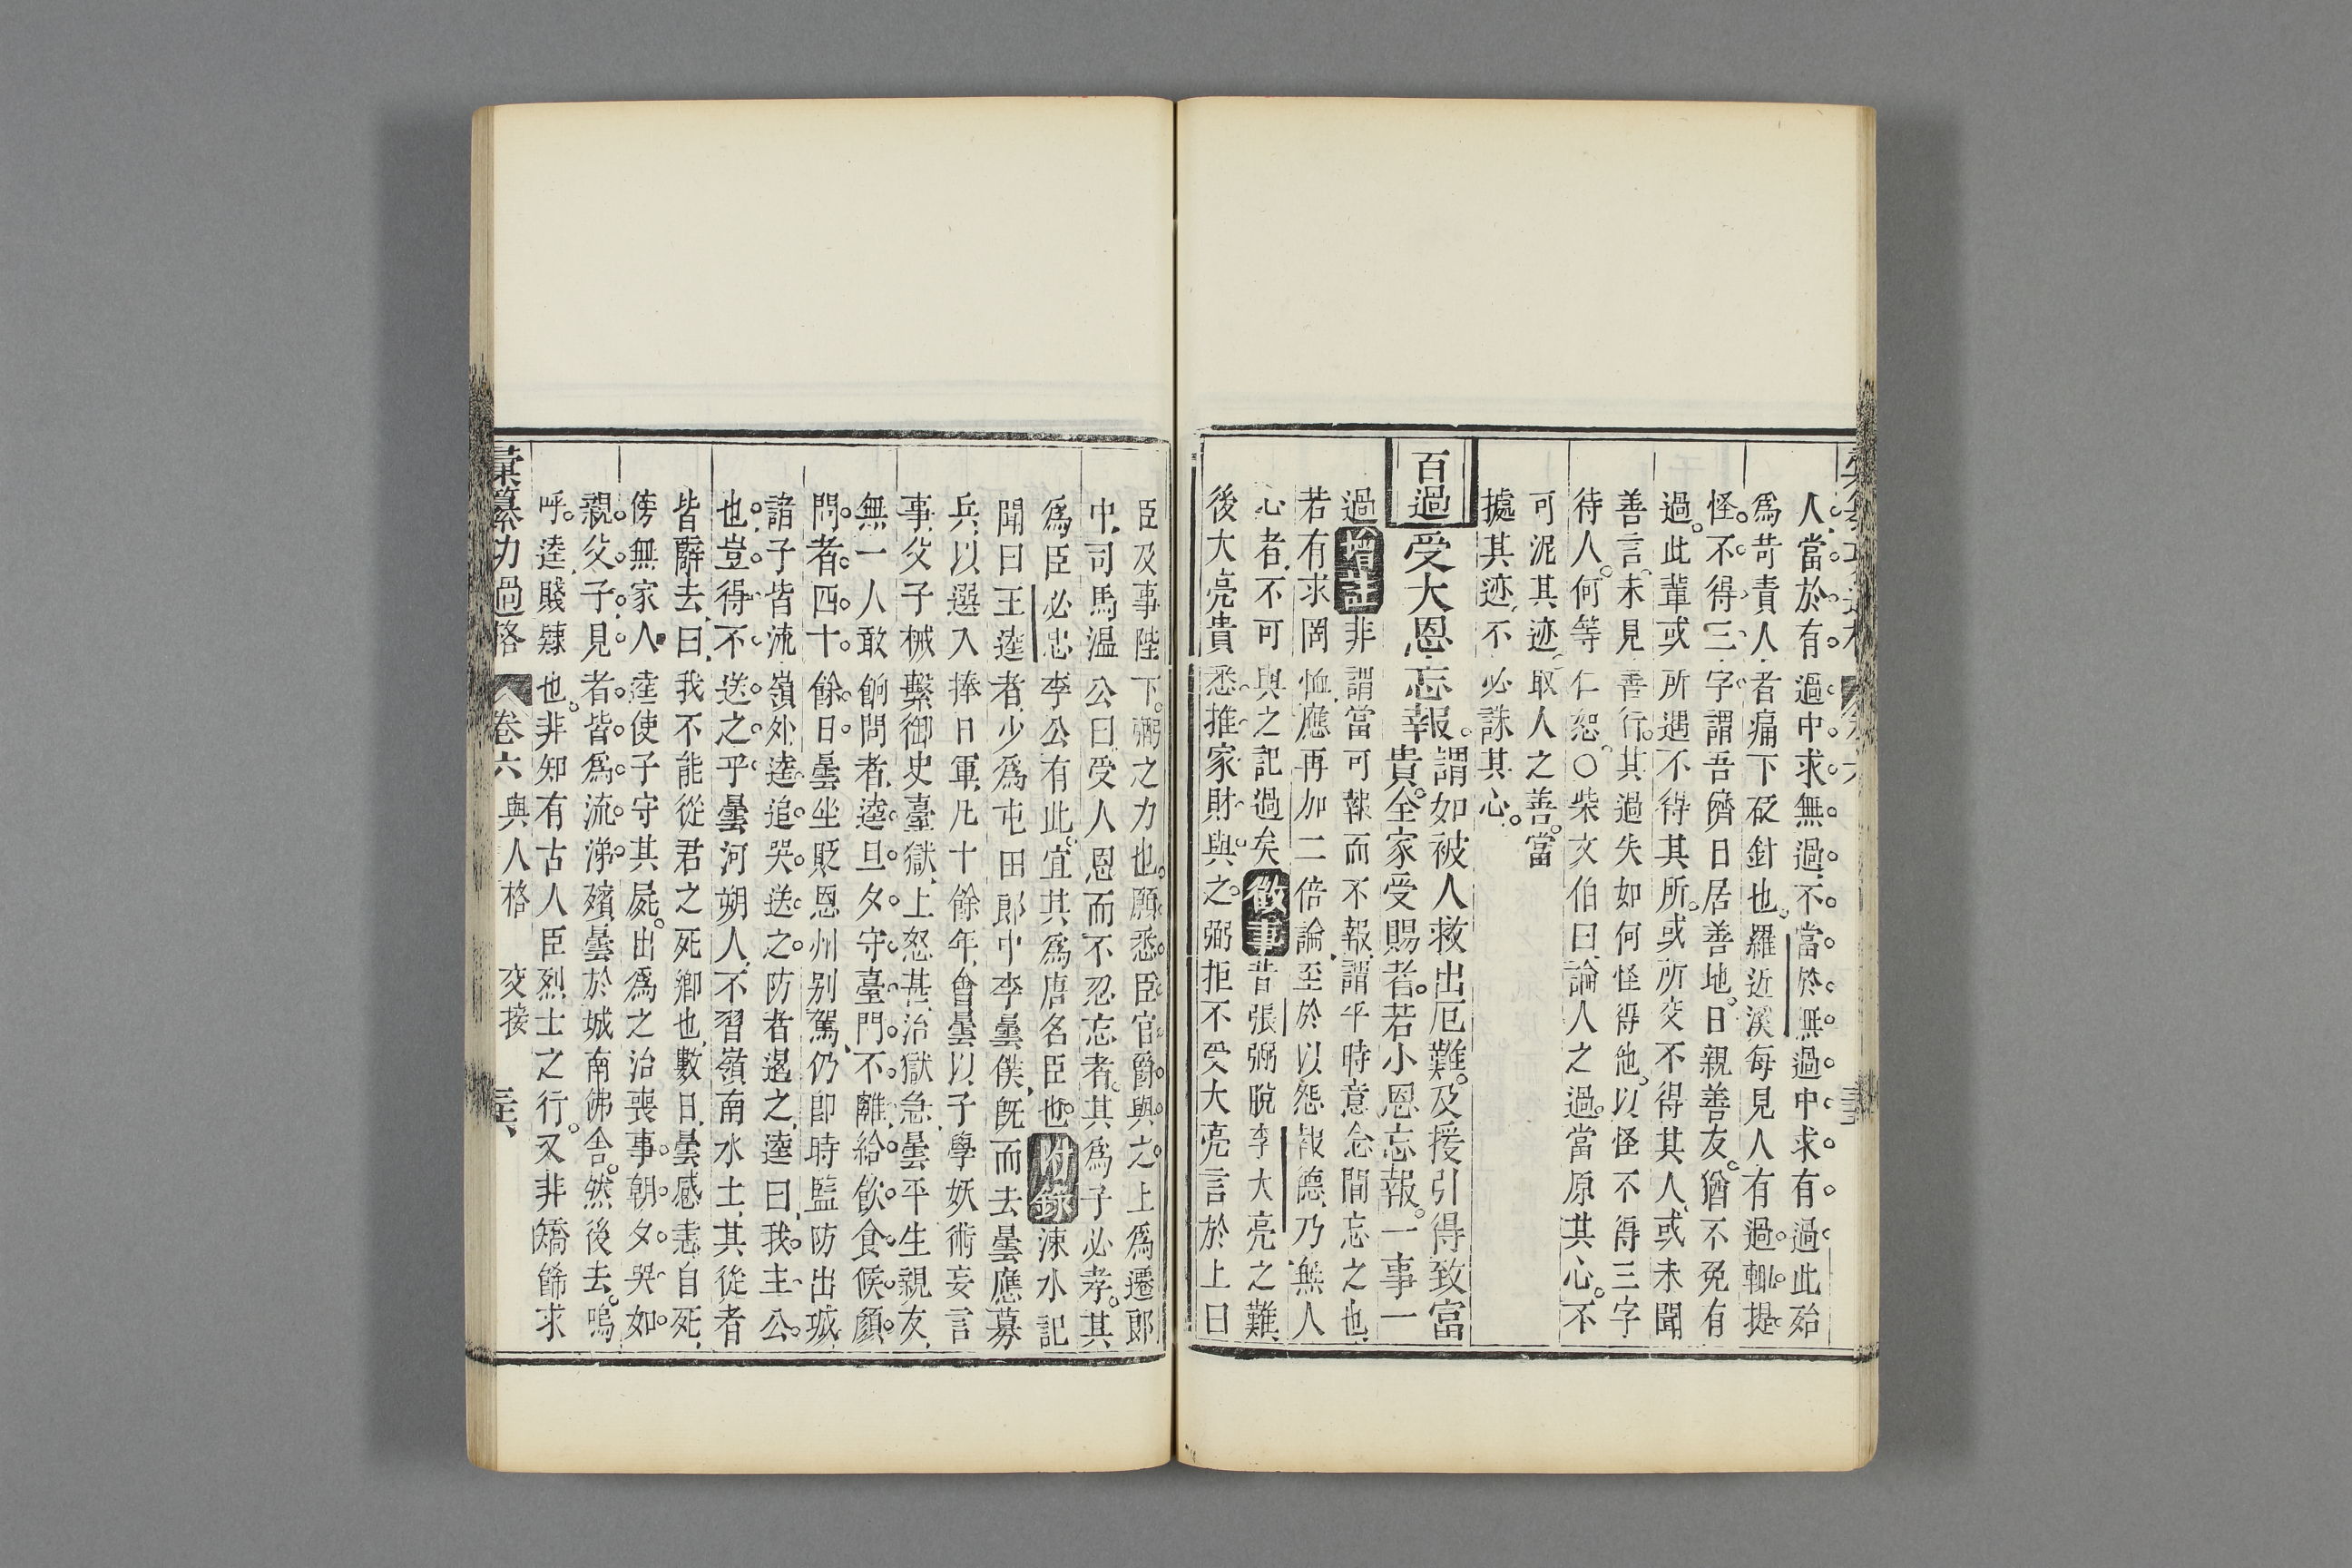 人當於有過中求無過不當於無過中求有過此殆
爲苛責人者痛下砭針也羅近溪每見人有過輒提
怪不得三字謂吾儕日居善地日親善友猶不免有
過此輩或所遇不得其所或所交不得其人或未聞
善言未見善行其過失如何怪得他以怪不得三字
待人何等仁恕○柴文伯曰論人之過當原其心不
可泥其迹取人之善當
據其迹不必誅其心
百過
受大恩忘報謂如被人救出厄難及援引得致富
貴全家受賜者若小恩忘報一事一
過增註非謂當可報而不報謂平時意念間忘之也
若有求罔恤應再加二倍論至於以怨報德乃無人
心者不可與之記過矣徵事昔張弼脫李大亮之難
後大亮貴悉推家財與之弼拒不受大亮言於上曰
臣及事陛下弼之力也願悉臣官爵與之上爲遷郎
中司馬温公曰受人恩而不忍忘者其爲子必孝其
爲臣必忠李公有此宜其爲唐名臣也附錄涑水記
聞曰王逵者少爲屯田郎中李曇僕旣而去曇應募
兵以選入捧日軍凡十餘年會曇以子學妖術妄言
事父子械繫御史臺獄上怒甚治獄急曇平生親友
無一人敢餉問者逵旦夕守臺門不離給飲食候顏
問者四十餘日曇坐貶恩州別駕仍卽時監防出城
諸子皆流嶺外逵追哭送之防者遏之逵曰我主公
也豈得不送之乎曇河朔人不習嶺南水土其從者
皆辭去曰我不能從君之死鄉也數日曇感恚自死
傍無家人逵使子守其屍出爲之治喪事朝夕哭如
親父子見者皆爲流涕殯曇於城南佛舍然後去嗚
呼逵賤隸也非知有古人臣烈士之行又非矯餙求
彙纂功過格 卷六 與人格 交接